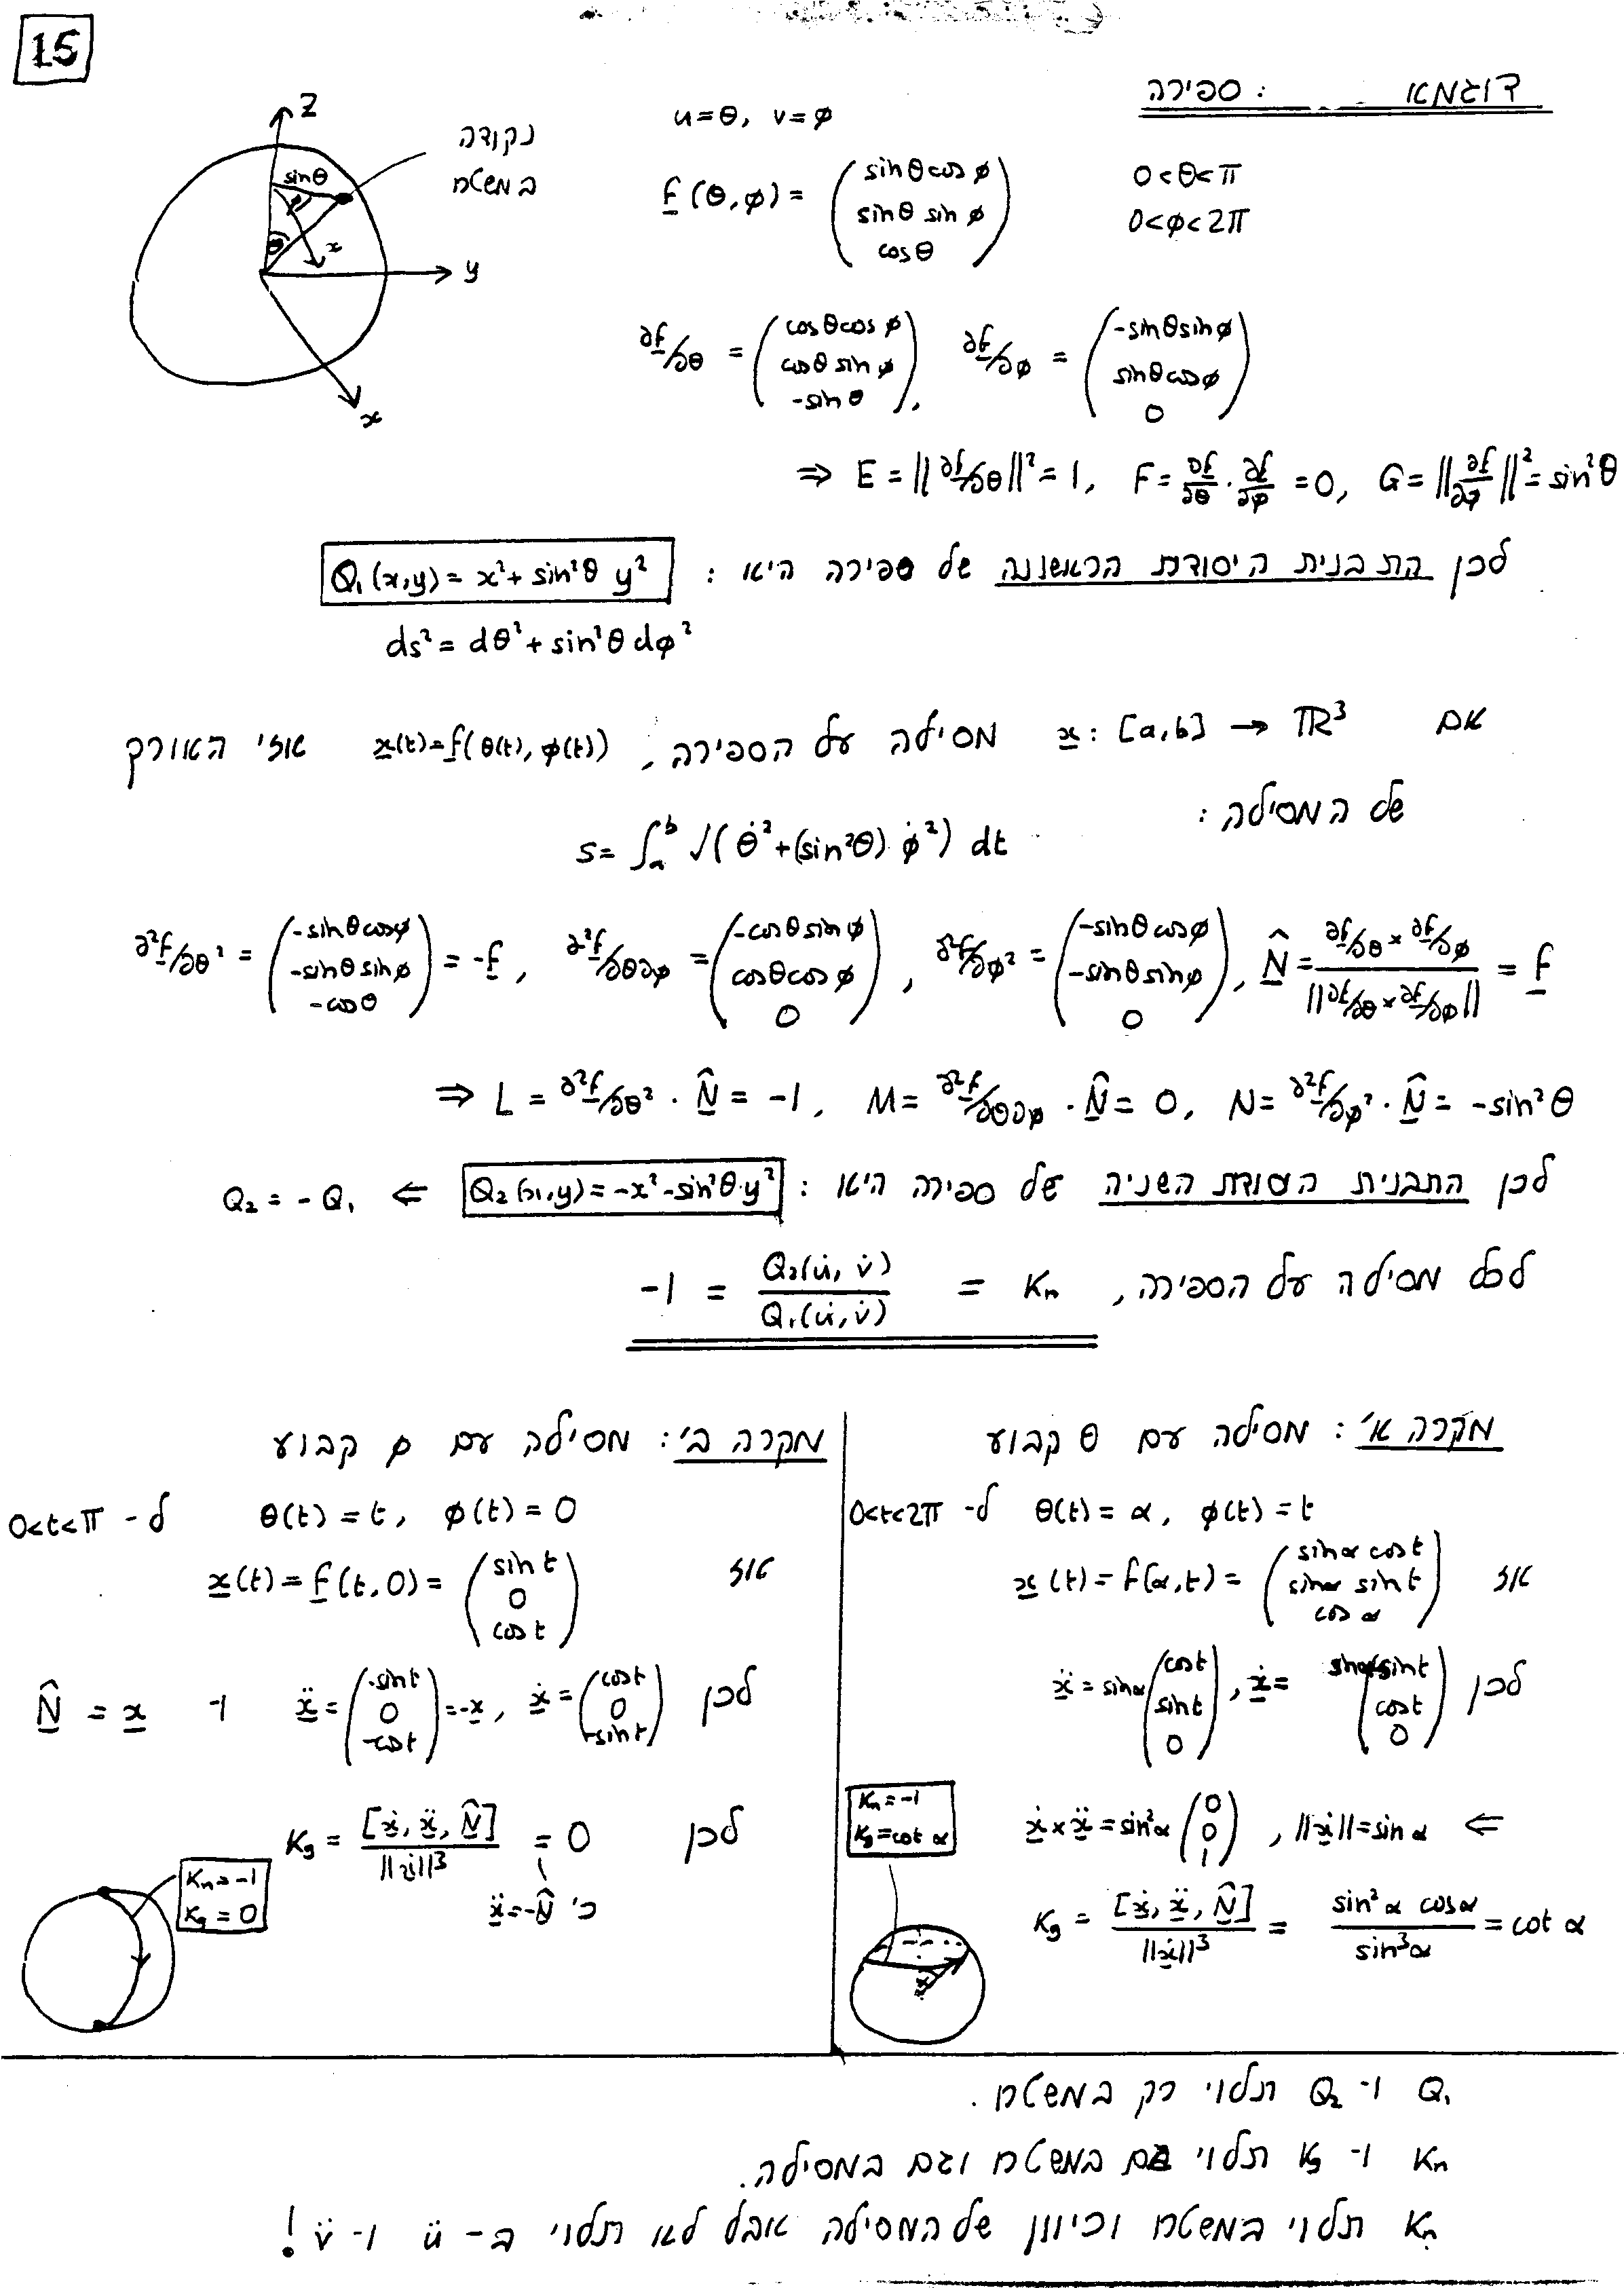 15
דוגמא : ספירה
z
נקודה
במשטח
sinθ
φ
θ
x
y
x
u=θ, v=φ
f(θ,φ) = (sinθcosφ, sinθ sinφ, cosθ) 0<θ<π
0<φ<2π
∂f/∂θ = (cosθcosφ, cosθ sinφ, -sinθ), ∂f/∂φ = (-sinθsinφ, sinθcosφ, 0)
⇒ E = ||∂f/∂θ||² = 1, F = ∂f/∂θ · ∂f/∂φ = 0, G = ||∂f/∂φ||² = sin²θ
לכן התבנית היסודת הראשונה של ספירה היא : Q₁(x,y) = x² + sin²θ y²
ds² = dθ² + sin²θ dφ²
אם x : [a,b] → ℝ³ מסילה על הספירה, x(t)=f(θ(t), φ(t)) אזי האורך
של המסילה :
s = ∫ₐᵇ √(θ̇² + (sin²θ) φ̇²) dt
∂²f/∂θ² = (-sinθcosφ, -sinθ sinφ, -cosθ) = -f, ∂²f/∂θ∂φ = (-cosθ sinφ, cosθcosφ, 0), ∂²f/∂φ² = (-sinθcosφ, -sinθsinφ, 0), N̂ = (∂f/∂θ × ∂f/∂φ) / ||∂f/∂θ × ∂f/∂φ|| = f
⇒ L = ∂²f/∂θ² · N̂ = -1, M = ∂²f/∂θ∂φ · N̂ = 0, N = ∂²f/∂φ² · N̂ = -sin²θ
לכן התבנית היסודת השניה של ספירה היא : Q₂(x,y) = -x² - sin²θ·y² ⇐ Q₂ = -Q₁
לכל מסילה על הספירה, Kₙ = Q₂(u̇, v̇) / Q₁(u̇, v̇) = -1
מקרה א' : מסילה עם θ קבוע
θ(t) = α, φ(t) = t ל- 0<t<2π
אז x(t) = f(α,t) = (sinα cost, sinα sint, cosα)
לכן ẋ = sinα (sint, cost, 0), ẍ = sinα (cost, sint, 0)
⇐ ||ẋ|| = sinα, ẋ×ẍ = sin²α (0, 0, 1)
Kₙ = -1
K_g = cot α
K_g = [ẋ, ẍ, N̂] / ||ẋ||³ = sin²α cosα / sin³α = cot α
α
מקרה ב' : מסילה עם φ קבוע
θ(t) = t, φ(t) = 0 ל- 0<t<π
אז x(t) = f(t,0) = (sint, 0, cost)
לכן ẋ = (cost, 0, -sint), ẍ = (-sint, 0, -cost) = -x ו- N̂ = x
לכן K_g = [ẋ, ẍ, N̂] / ||ẋ||³ = 0
כי ẍ = -N̂
Kₙ = -1
K_g = 0
Q₁ ו- Q₂ תלוי רק במשטח.
Kₙ ו- K_g תלוי גם במשטח וגם במסילה.
Kₙ תלוי במשטח וכיוון של המסילה אבל לא תלוי ב- ü ו- v̈ !